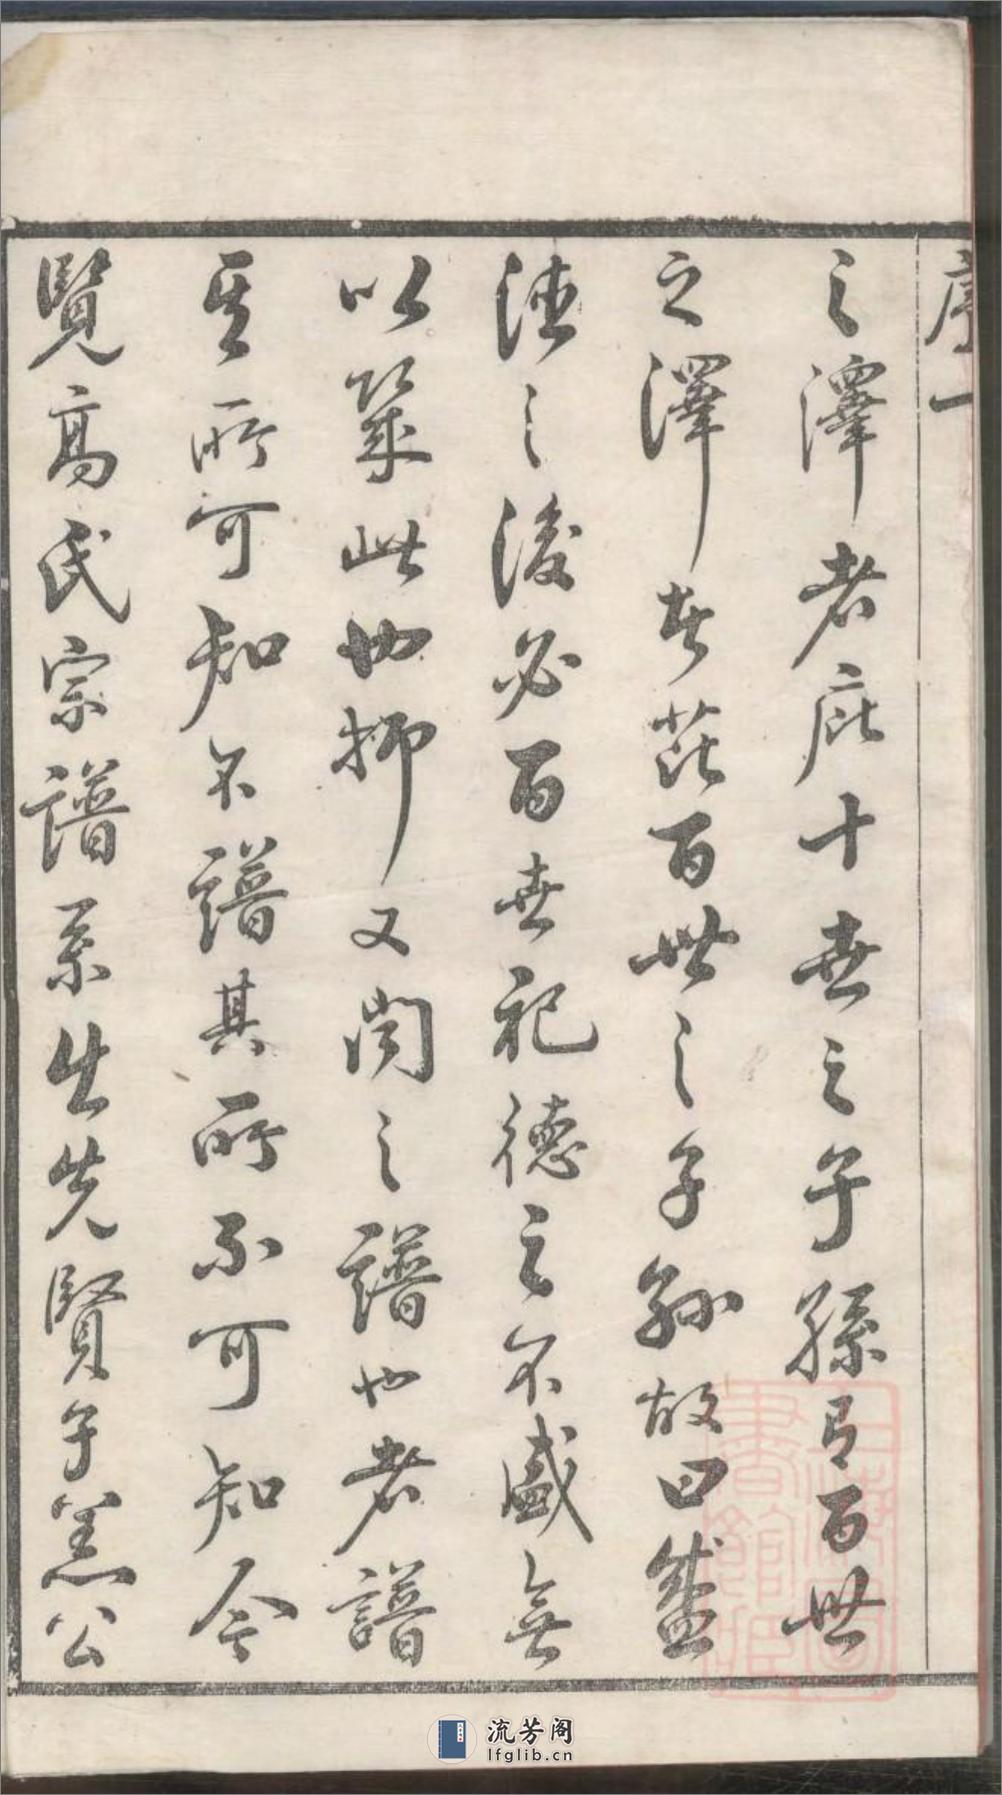 序一
之澤者庇十世之子孫有百世
之澤者茈百世之子孫故曰盛
德之後必百世祀德之不盛無
以築此也抑又聞之譜也者譜
其所可知不譜其所不可知今
覽高氏宗譜系出先賢子羔公
流芳阁
lfglib.cn